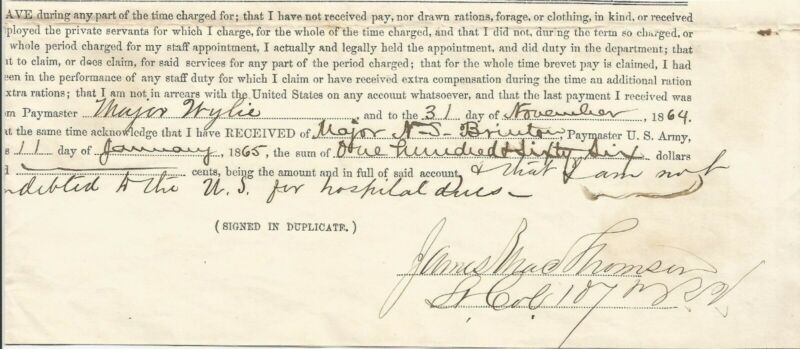 AVE during any part of the time charged for; that I have not received pay, nor drawn rations, forage, or clothing, in kind, or received
ployed the private servants for which I charge, for the whole of the time charged, and that I did not, during the term so charged, or
whole period charged for my staff appointment, I actually and legally held the appointment, and did duty in the department; that
nt to claim, or does claim, for said services for any part of the period charged; that for the whole time brevet pay is claimed, I had
een in the performance of any staff duty for which I claim or have received extra compensation during the time an additional ration
extra rations; that I am not in arrears with the United States on any account whatsoever, and that the last payment I received was
om Paymaster Major Wylie and to the 31 day of November, 1864.
at the same time acknowledge that I have RECEIVED of Major N S Brinton, Paymaster U. S. Army,
s 11 day of January, 1865, the sum of One hundred & Sixty Six dollars
d cents, being the amount and in full of said account, & that I am not
indebted to the U. S. for hospital dues -
(SIGNED IN DUPLICATE.)
James Mac Thomson
Lt. Col. 107